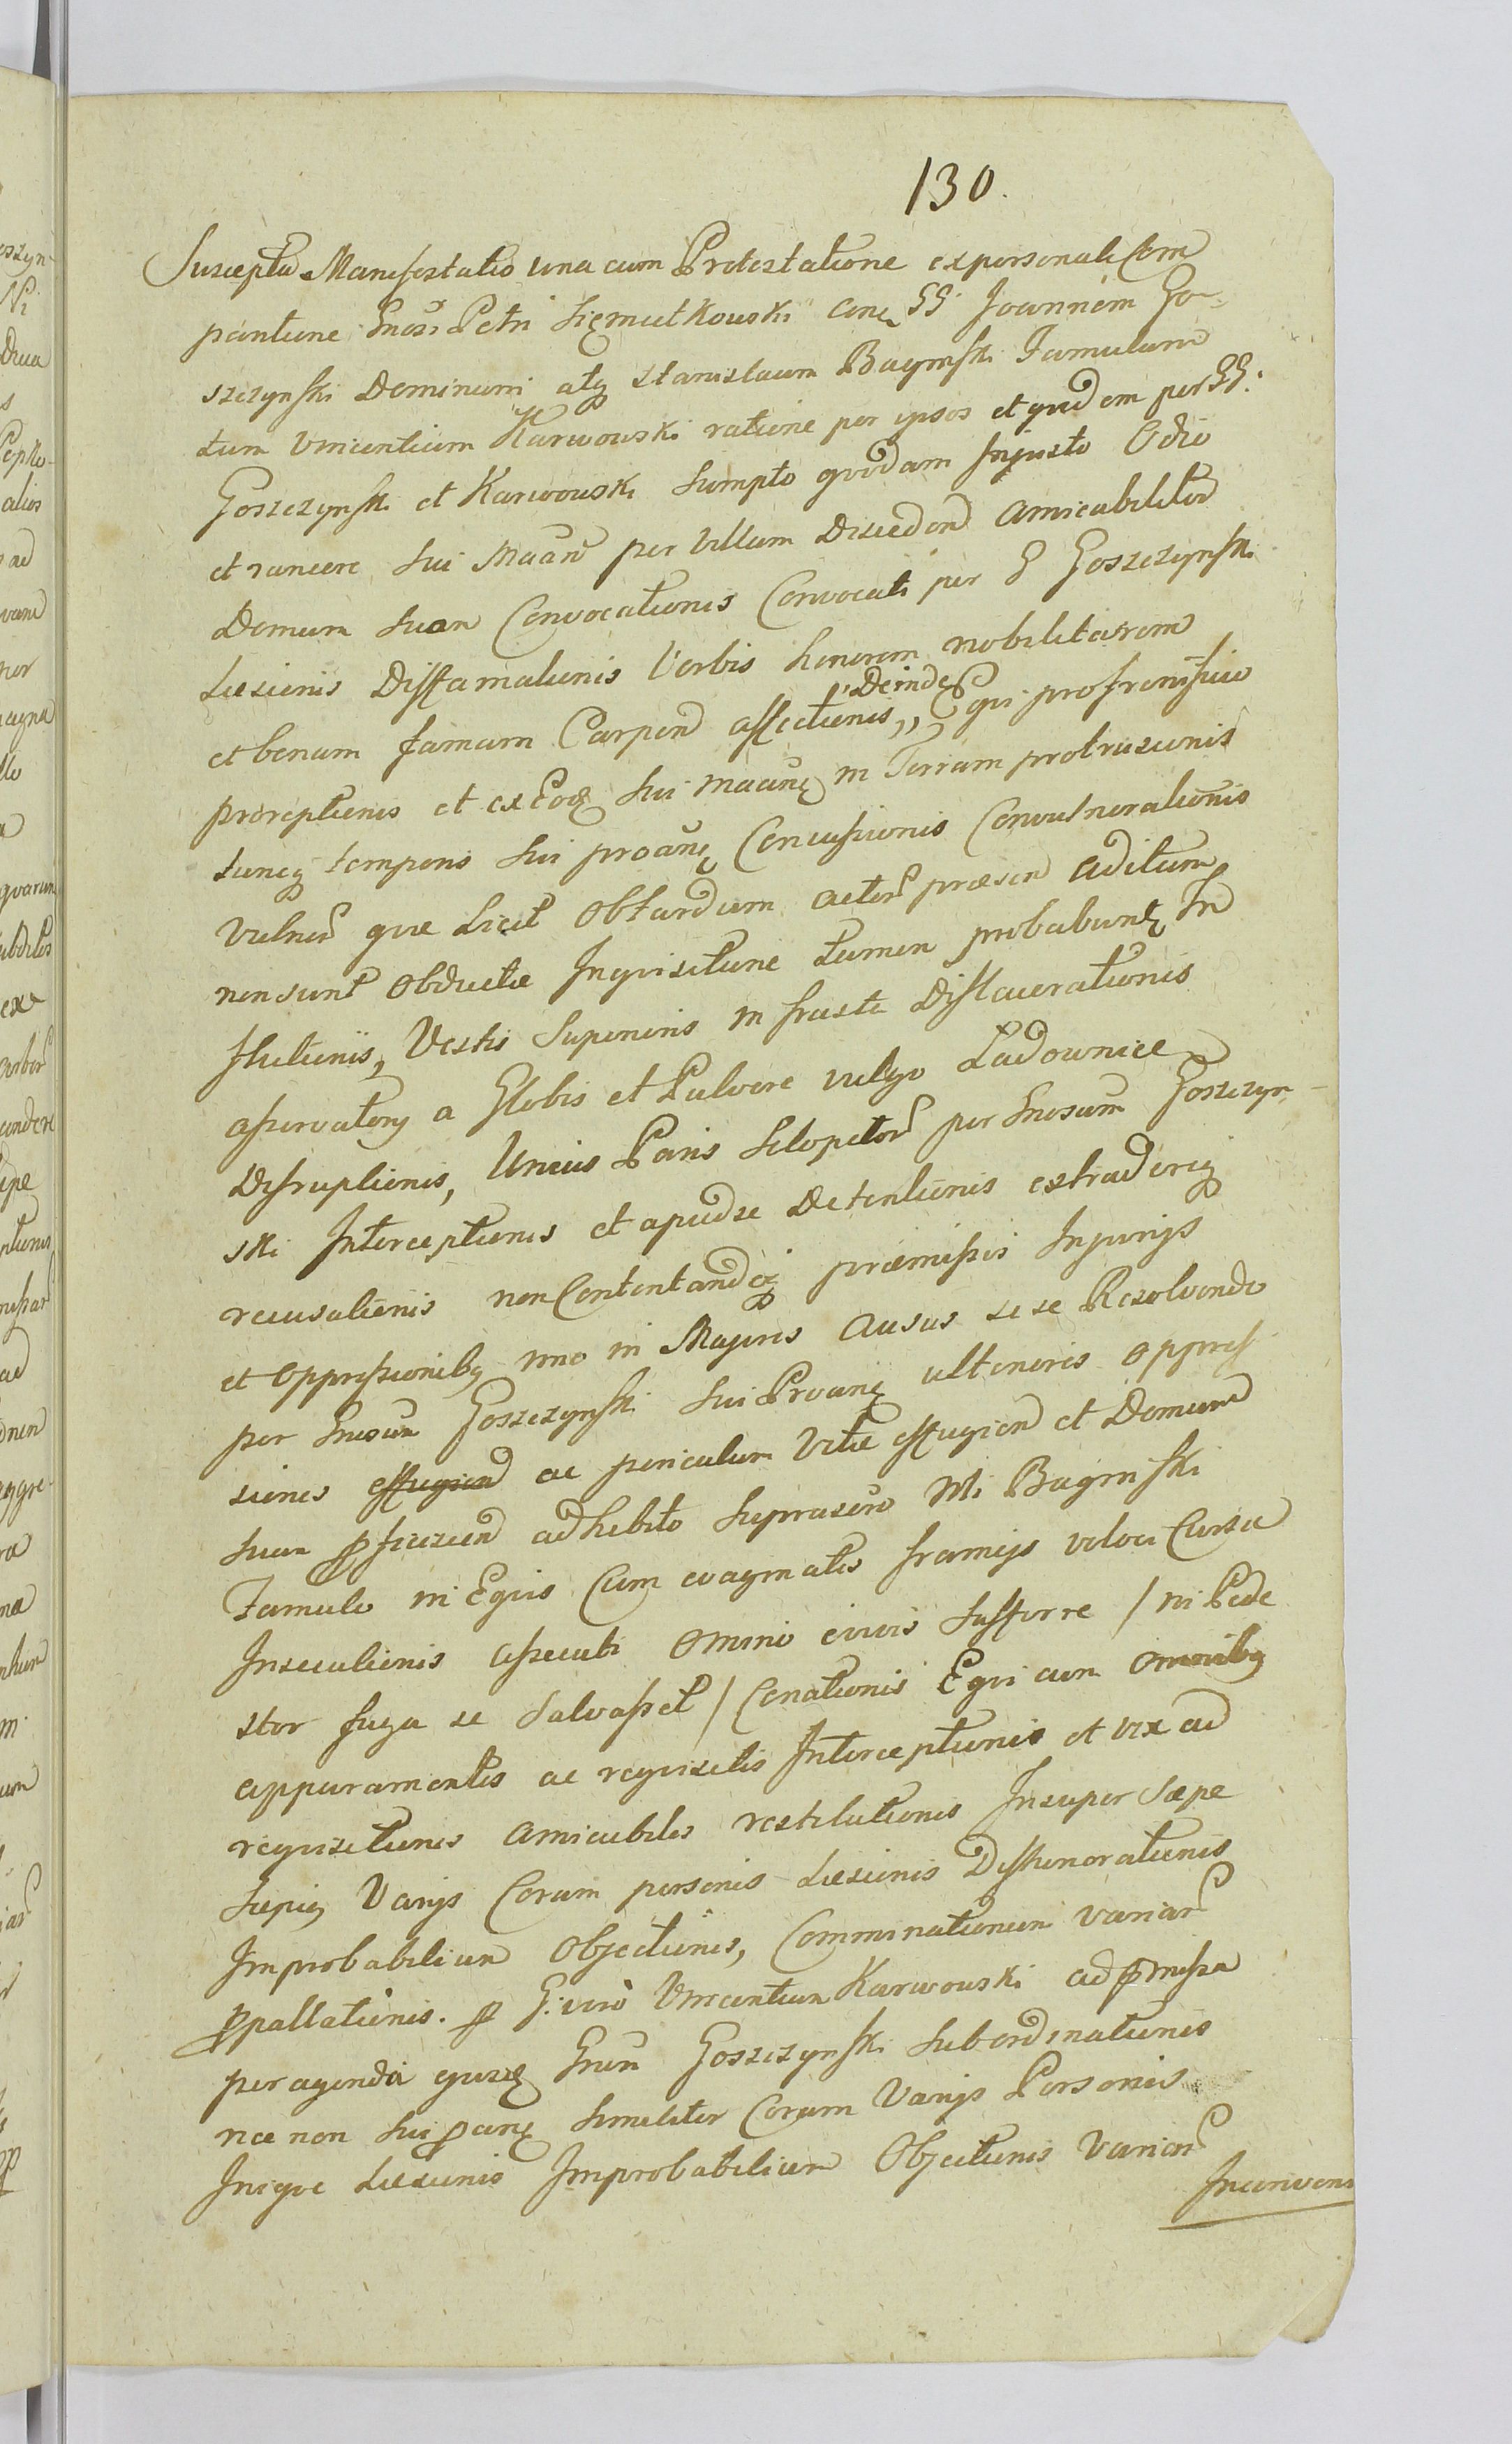 130.
Suscepta Manifestatio una cum Protestatione ex personali Com
paritione Gnosi Petri Siemutkowski con GG: Joannem Go-
szczynski Dominum atq Stanislaum Baginski Famulum
tum Vincentium Karwowski ratione per ipsos et quidem per GG:
Goszczynski et Karwowski sumpto quodam Injusto Odio
et rancore sui Maan per Villam Disceden amicabiliter
Domum suam Convocationis Convocati per G Goszczynski
Læsionis Diffamationis Verbis honorem nobilitarem
et bonam famam Carpen affectionis,, Deinde Equi pro frenisuio
proreptionis et ex Eoq sui maanq in Terram protrusionis
tuncq temporis sui proanq Concussionis Convulnerationis
Vulner quæ Licet Obtardum actor præsen aditum
non sunt Obductæ Inquisitione tamen probabunt In
stitutionis, Vestis Superioris in frusta Dislacerationis
asservatorij a Globis et Pulvere vulgo Ładownice
Disruptionis, Unius Paris Sclopetor per Gnosum Goszczyn-
ski Interceptionis et apud se Detentionis extraderiq
recusationis non Contentandoq præmissis Injurijs
et oppressionibq imo in Majores Ausus se se Resolvendo
per Gnosum Goszczynski sui Proanq ulterioris oppres
siones effugien ac periculum Vitæ effugien et Domum
suam pficiscen adhibito suprascro Mi Baginski
Famulo in Equis Cum evaginatis frameijs veloci Cursu
Insecutionis assecuti omino eivis sufferre / ni Pede
ster fuga se salvasset / Conationis Equi cum omnibq
apparamentis ac requisitis Interceptionis et vix ad
requisitionis amicabiles restitutionis Insuper Sæpe
sæpiq Varijs Coram personis Læsionis Dishonorationis
Improbabilium Objectionis, Comminationum variar
ppallationis. p G: vero Vincentium Karwowski ad pmissa
peragenda gusq Gnum Goszczynski subordinationis
nec non sui panq similiter Coram Varijs Personis
Inique Læsionis Improbabilium Objectionis Variar
Inconveni